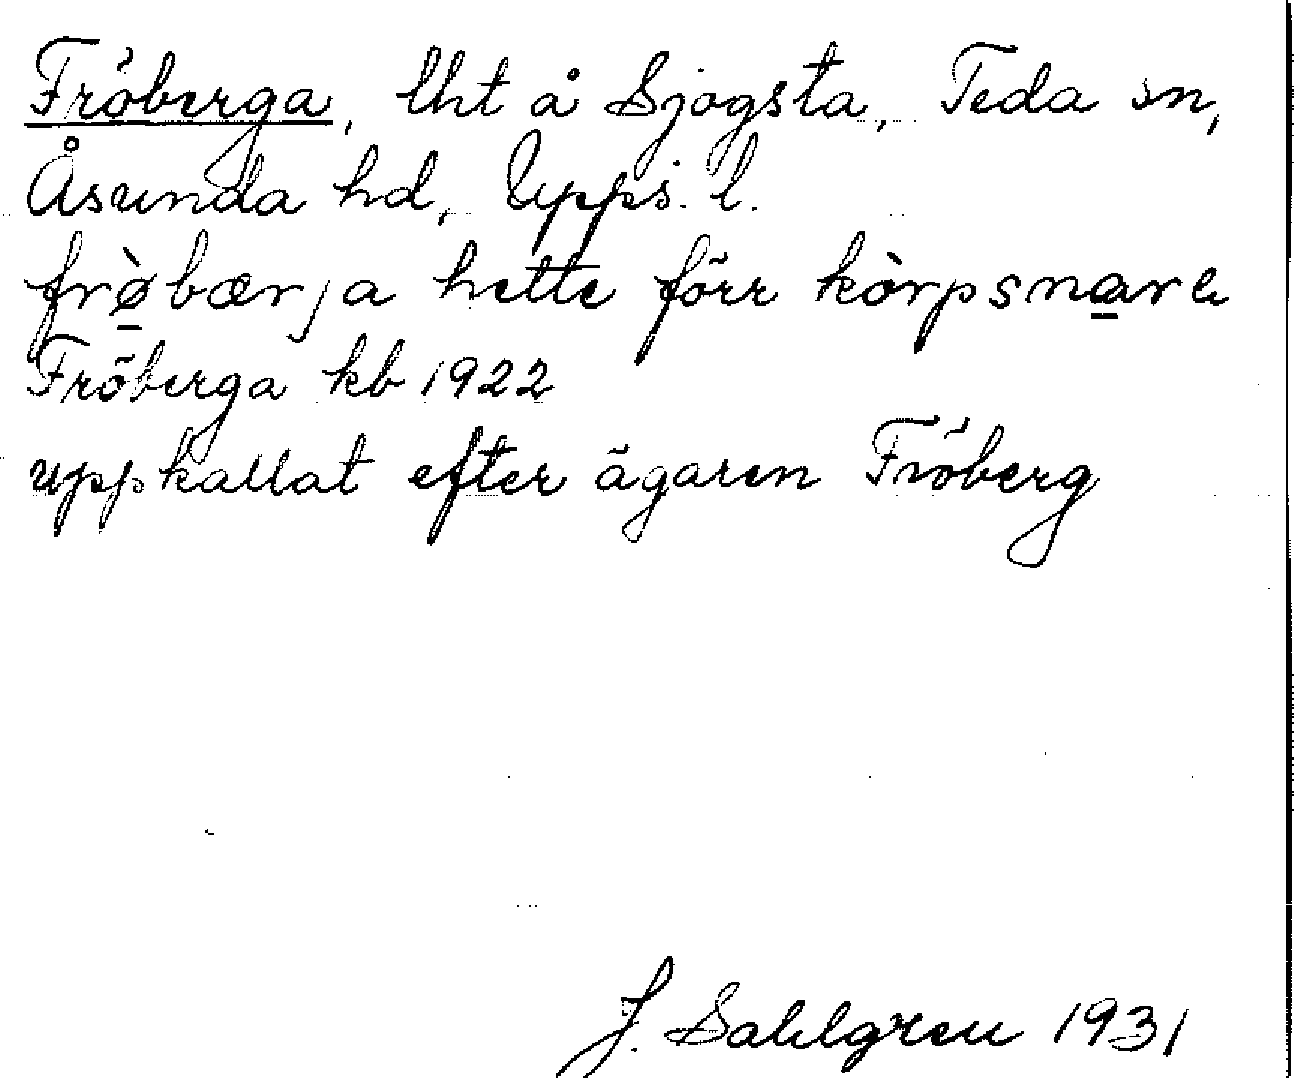 Fröberga, lht å Sjogsta, Teda sn,
Åsunda hd, Upps. l.
frø̀bærja hette förr kòrpsnare
Fröberga kb 1922
uppkallat efter ägaren Fröberg
J. Sahlgren 1931